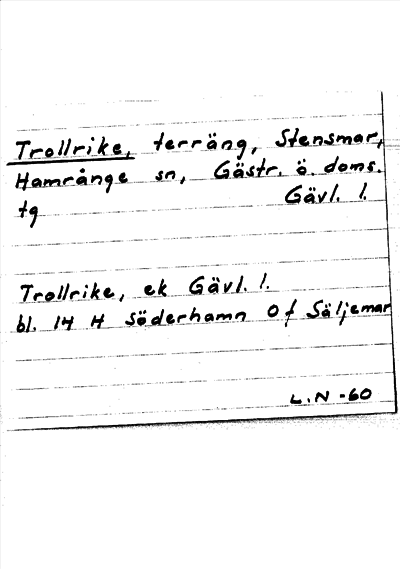 Trollrike, terräng, Stensmar,
Hamrånge sn, Gästr. ö. doms.
tg Gävl. l.
Trollrike, ek Gävl. l.
bl. 14 H Söderhamn 0 f Säljemar
L.N -60